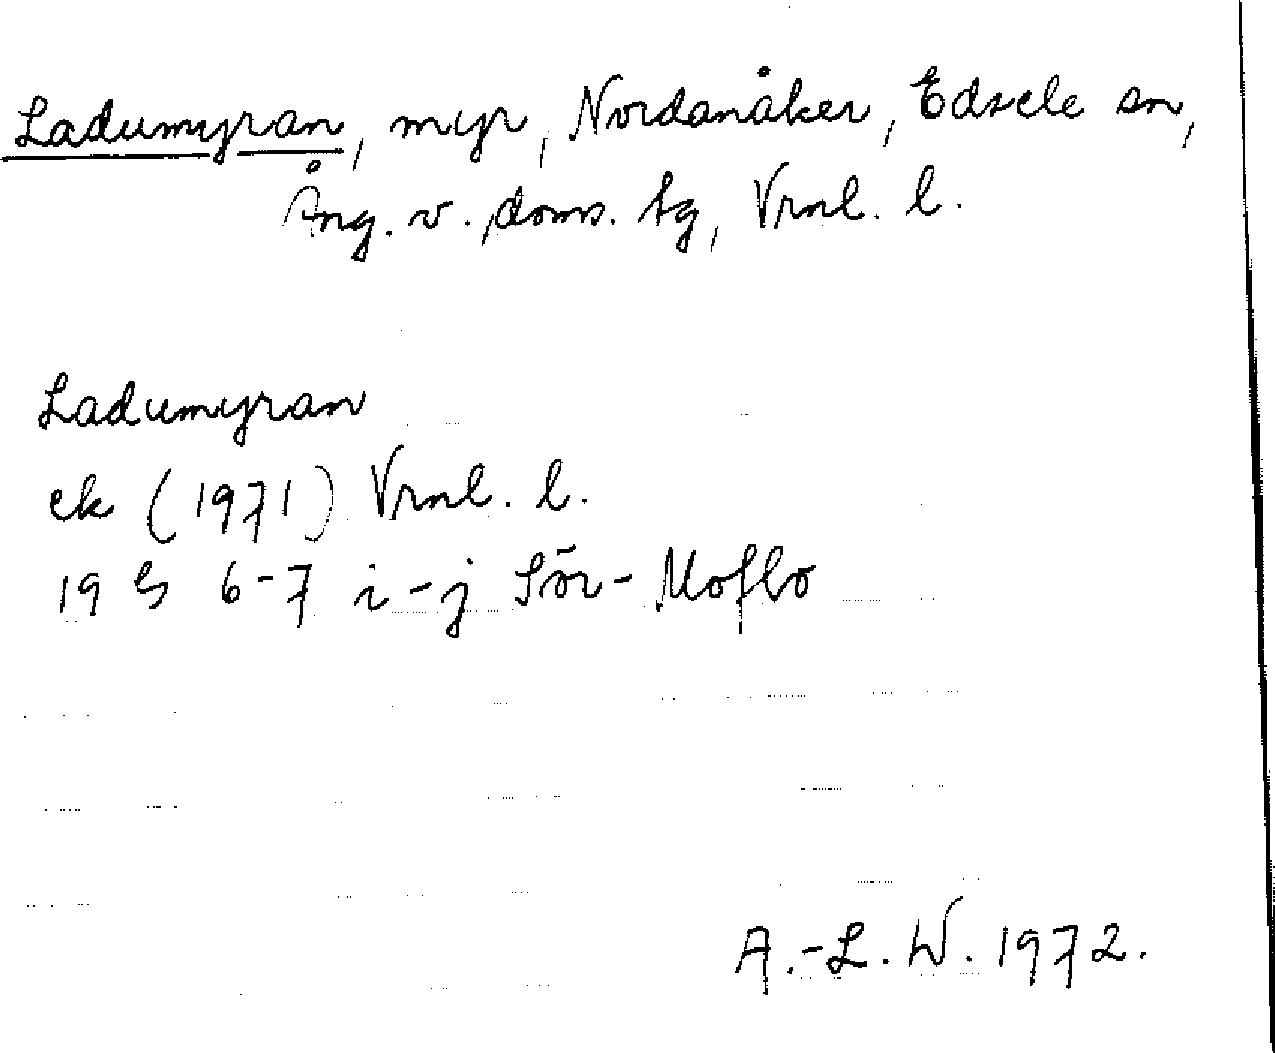 Ladumyran, myr, Nordanåker, Edsele sn,
Ång. v. doms. tg, Vrnl. l.
Ladumyran
ek (1971) Vrnl. l.
19 G 6-7 i-j Sör-Moflo
A.-L. W. 1972.